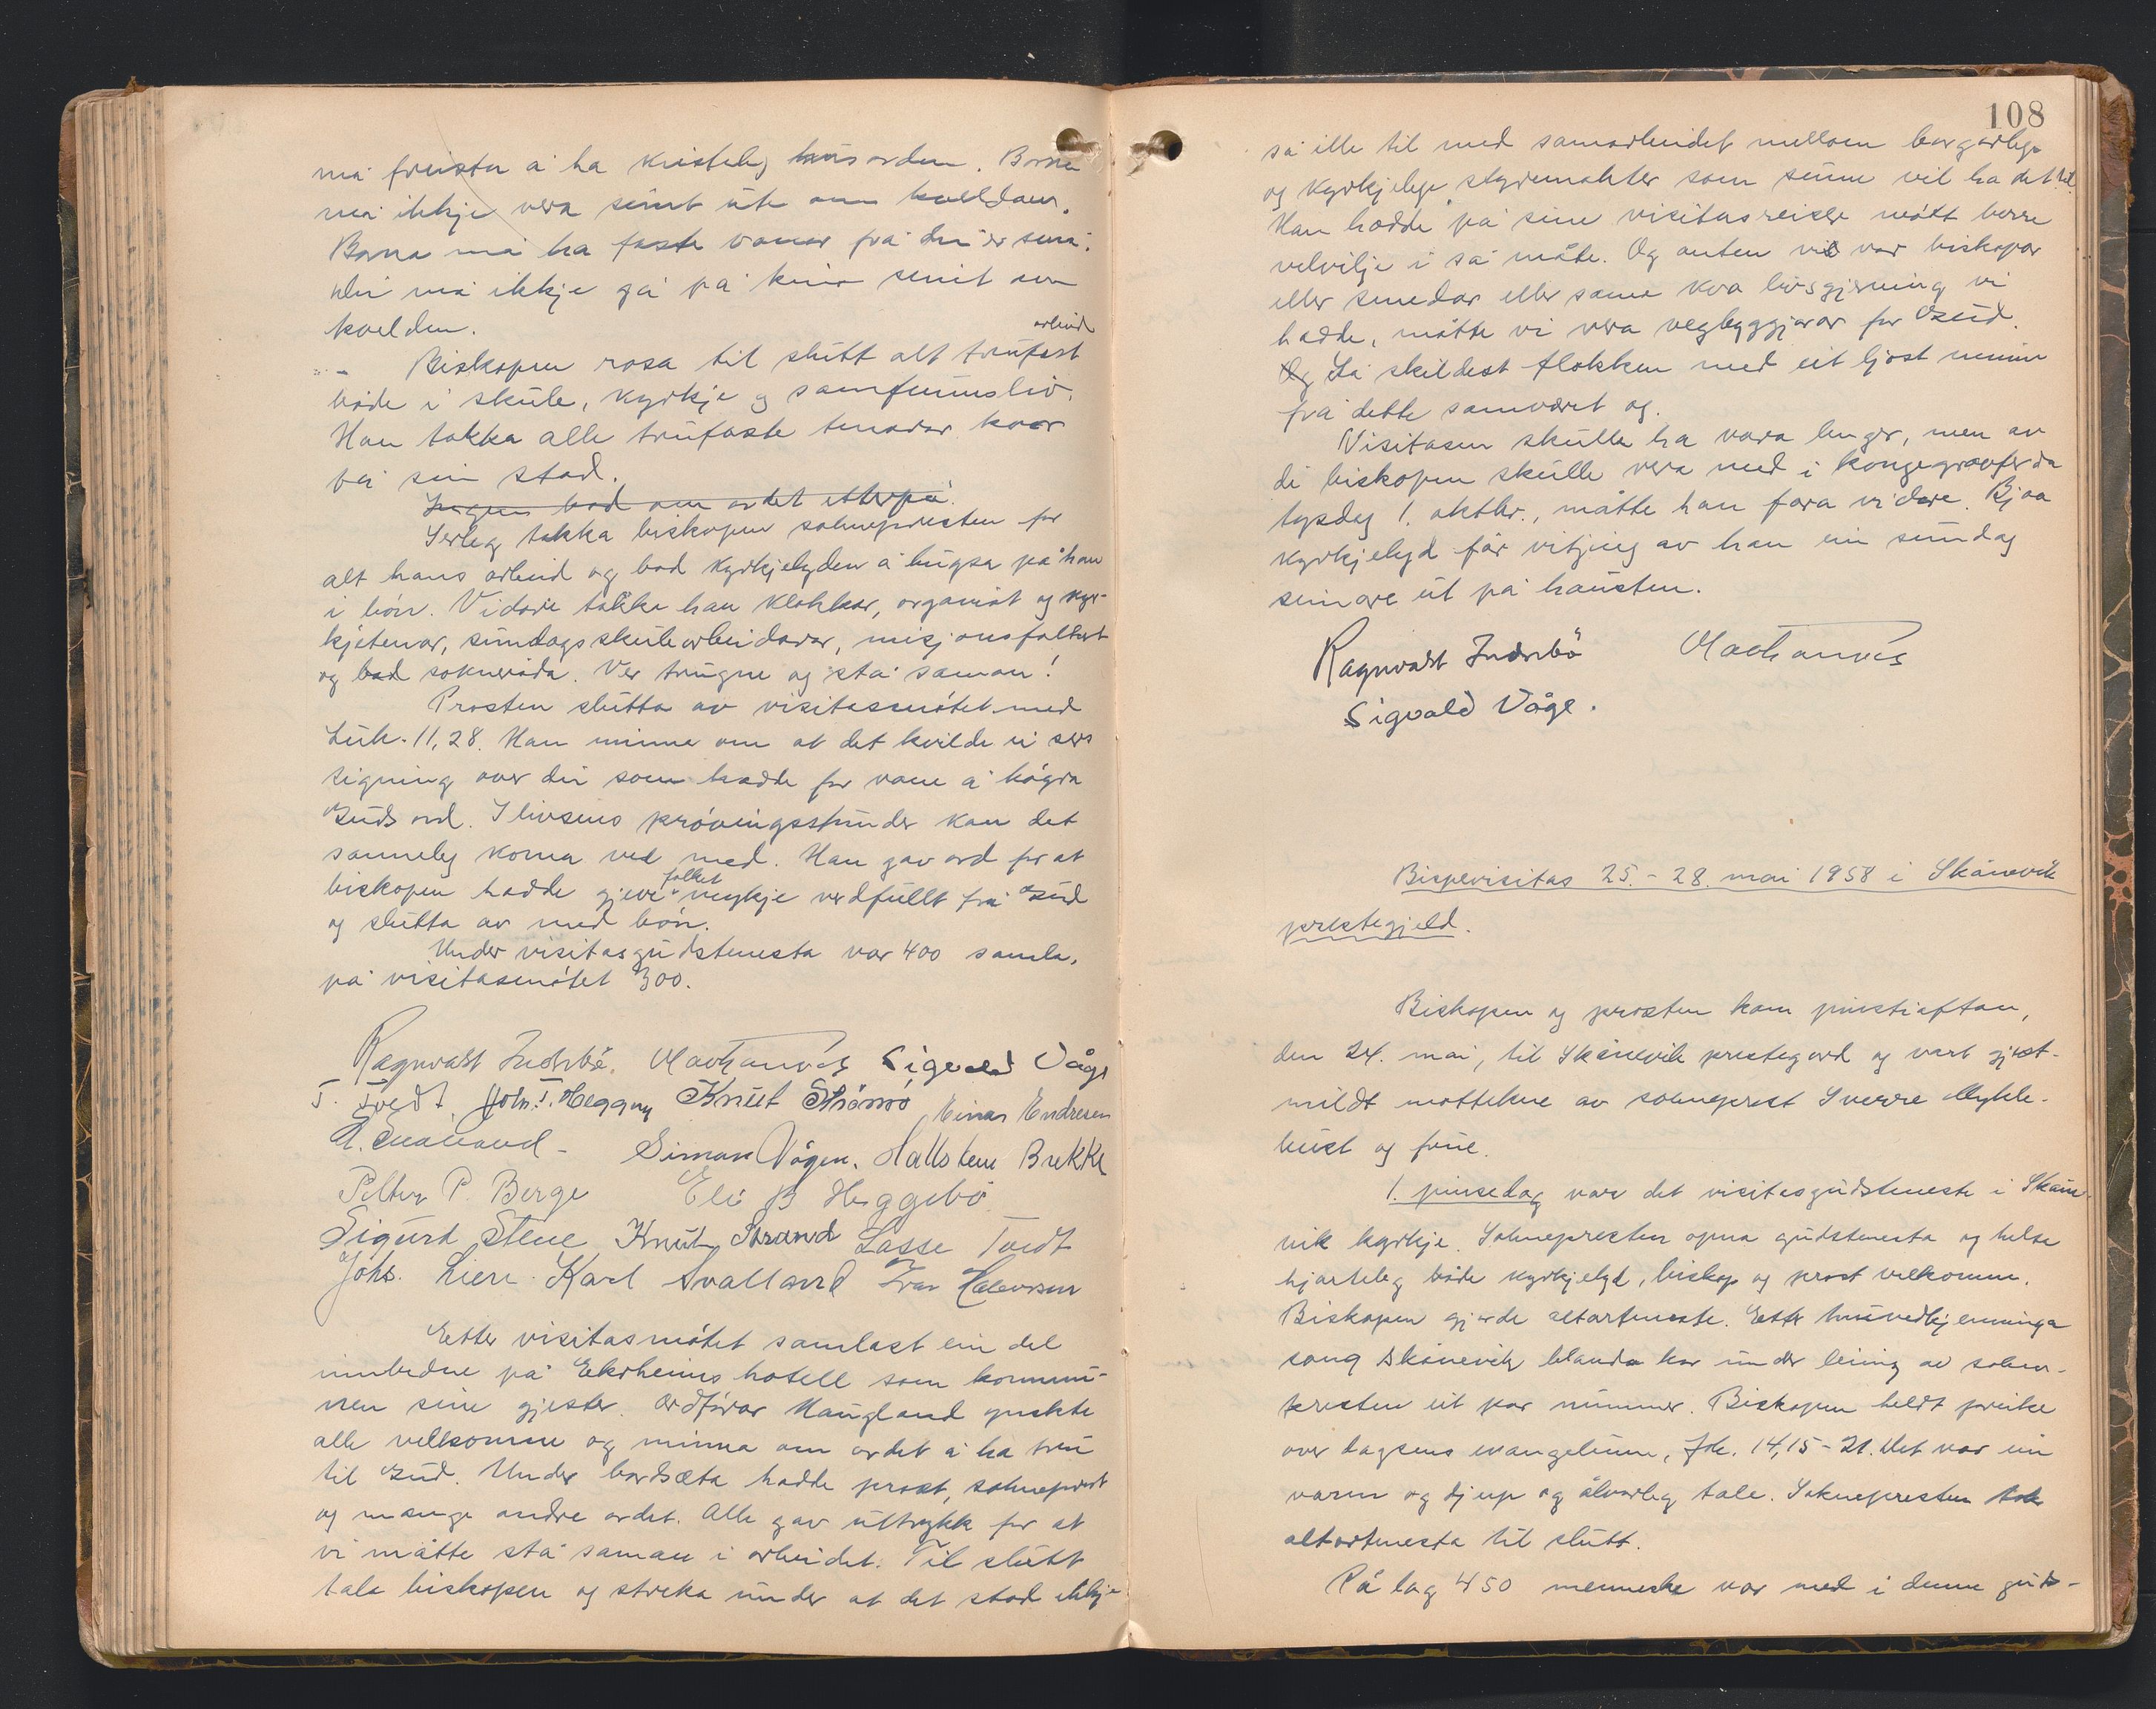 må freista å ha kristeleg husorden. Borna
må ikkje vera seint ute om kveldane.
Borna må ha faste vanar frå dei er små.
Dei må ikkje gå på kino seint om
kvelden.
Biskopen rosa til slutt alt trufast arbeid
både i skule, kyrkje og samfunnsliv.
Han takka alle trufaste tenarar kvar
på sin stad.
Ingen bad om ordet etterpå.
Serleg takka biskopen soknepresten for
alt hans arbeid og bad kyrkjelyden å hugsa på han
i bön. Vidare takka han klokkar, organist og kyr-
kjetenar, sundagsskulearbeidarar, misjonsfolket
og bad sokneråda. Ver trugne og stå saman!
Prosten slutta av visitasmötet med
Luk. 11,28. Han minna om at det kvilde ei sers
signing over dei som hadde for vane å höyra
Guds ord. I livsens pröving­sstunder kan det
sanneleg koma vel med. Han gav ord for at
biskopen hadde gjeve folket mykje verdfullt frå Gud
og slutta av med bön.
Under visitasgudstenesta var 400 samla,
på visitasmötet 300.
Ragnvald Indrebö. Sigvald Våge
T. Tvedt. Joh. T. Heggøy Knut Strömö Einar Endresen
Simon Vågen. Hallstein Brekke
Petter P. Berge Eli B Heggebö
Sigurd Stene Knut Strand Lasse Tvedt
Johs. Lien. Karl Svalland Ivar Halvorsen
Etter visitasmötet samlast ein del
innbedne på Eikrheims hotell som kommu-
nen sine gjester. Ordförar Haugland ynskte
alle velkomne og minna om ordet å ha tru
til Gud. Under bordsæta hadde prost, sokneprest
og mange andre ordet. Alle gav uttrykk for at
vi måtte stå saman i arbeidet. Til slutt
tala biskopen og streka under at det stod ikkje
108
så ille til med samarbeidet mellom borgarlege
og kyrkjelege styremakter som sume vil ha det til.
Han hadde på sine visitasreiser mött berre
velvilje i så måte. Og anten vi var biskopar
eller smedar eller same kva livsgjerning vi
hadde, måtte vi vera vegbyggjarar for Gud.
Og Så skildest flokken med eit ljost minne
frå dette samværet og.
Visitasen skulle ha vara lenger, men av
di biskopen skulle vera med i kongegravferda
tysdag 1. oktbr., måtte han fara vidare. Bjoa
kyrkjelyd får vitjing av han ein sundag
seinare ut på hausten.
Ragnvald Indrebö
Sigvald Våge.
Bispevisitas 25.-28. mai 1958 i Skånevik
prestegjeld.
Biskopen og prosten kom pinseaftan,
den 24. mai, til Skånevik prestegard og vart gjest-
mildt mottekne av sokneprest Sverre Mykle-
bust og frue.
1. pinsedag var det visitasgudsteneste i Skåne-
vik kyrkje. Soknepresten opna gudstenesta og helsa
hjarteleg både kyrkjelyd, biskop og prost velkomne.
Biskopen gjorde altarteneste. Etter truvedkjenninga
song Skånevik blanda kor under leiing av sokne-
presten eit par nummer. Biskopen heldt preike
over dagsens evangelium, Joh. 14,15-21. Det var ein
varm og djup og ålvorleg tale. Soknepresten tok
altartenesta til slutt.
På lag 450 menneske var med i denne guds-